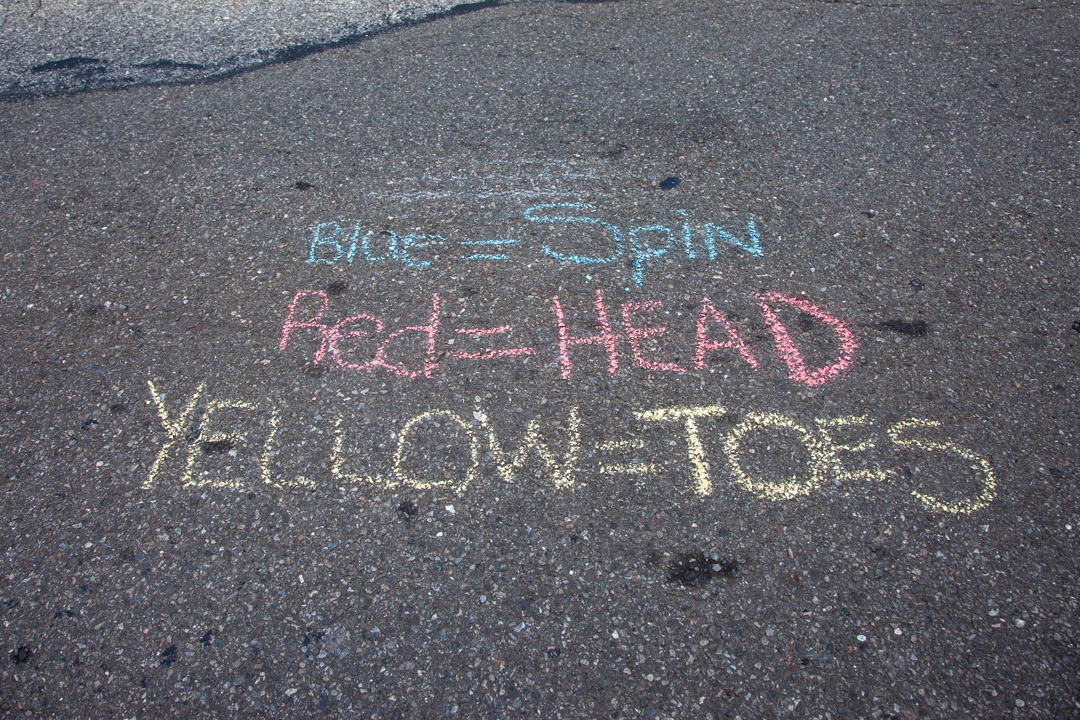 Blue = Spin
Red = HEAD
YELLOW = TOES